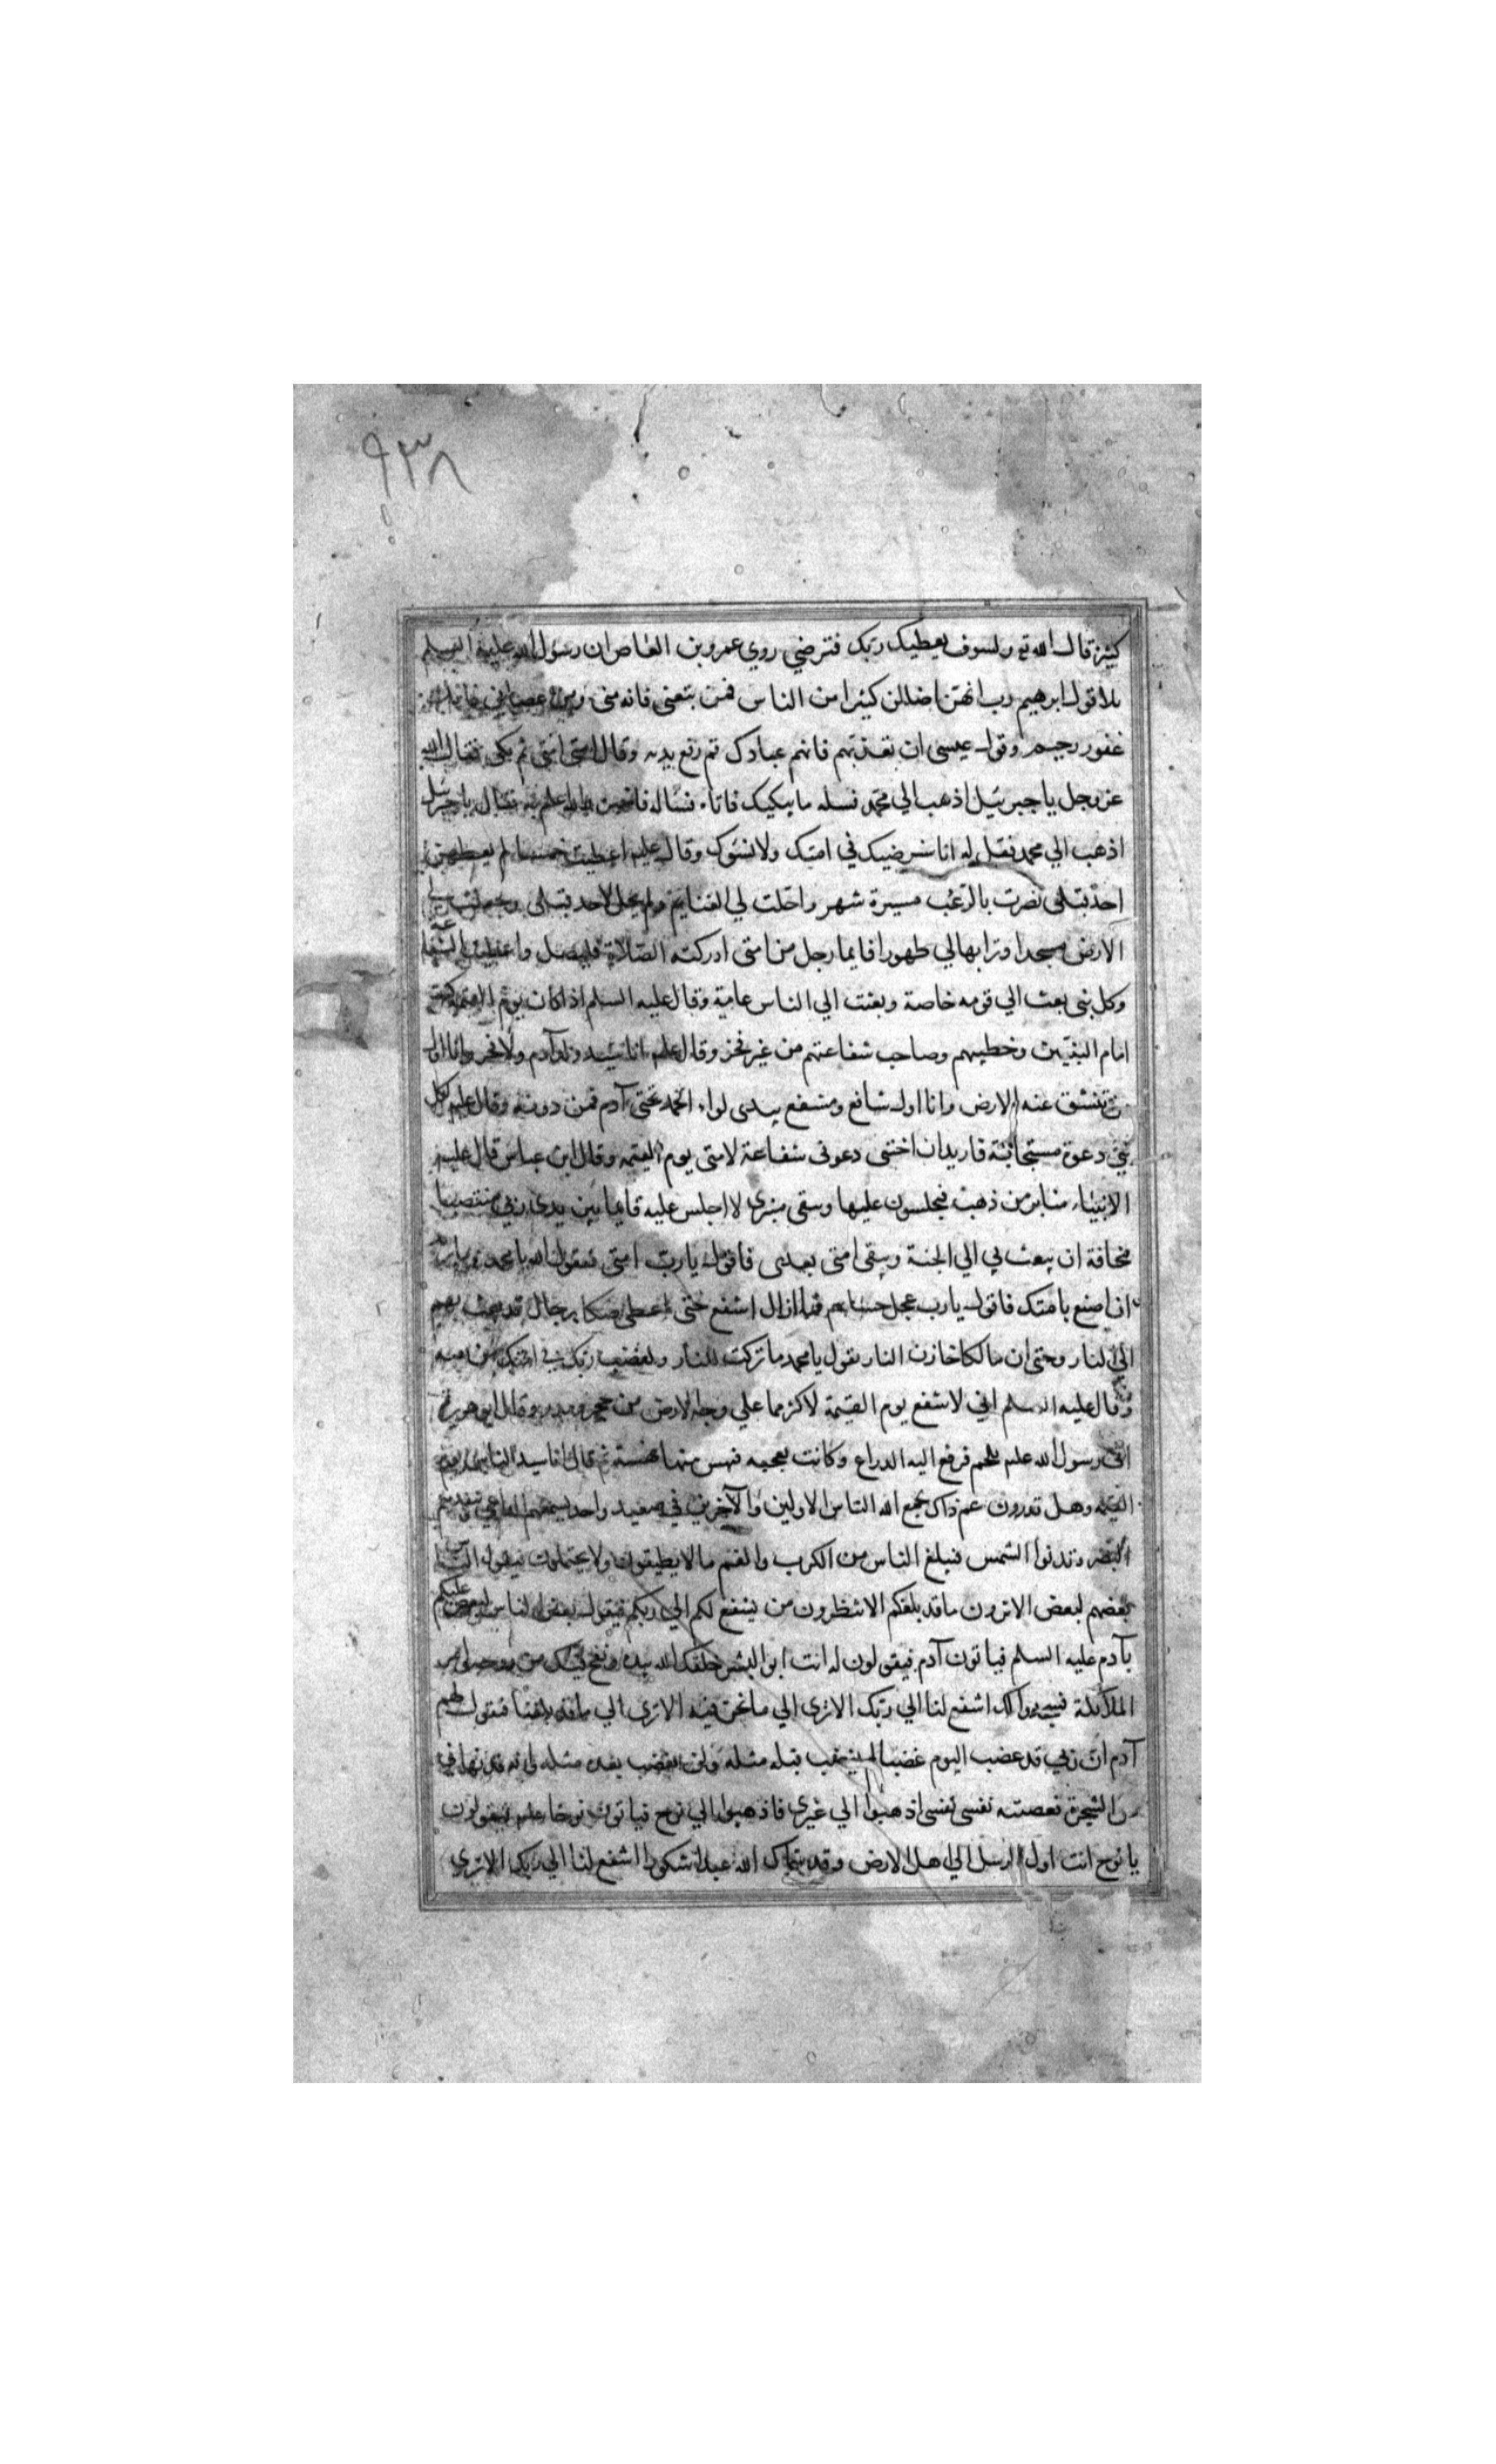 ٩٣٨
كثيرة قال الله تع ولسوف يعطيك ربك فترضي روي عمرو بن العاص ان رسول الله عليه السلم
تلا قول ابرهيم رب انهن اضللن كثيرا من الناس فمن تبعني فانه مني ومن عصاني فانك
غفور رحيم وقول عيسى ان تعذبهم فانهم عبادك ثم رفع يديه وقال امتي امتي ثم بكى فقال الله
عز وجل يا جبرئيل اذهب الي محمد فسله ما يبكيك فاتاه فسأله فاخبره والله اعلم به فقال يا جبرئيل
اذهب الي محمد فقل له انا سنرضيك في امتك ولا نسؤك وقال عليلم اعطيت خمسا لم يعطهن
احد قبلي نصرت بالرعب مسيرة شهر واحلت لي الغنايم ولم يحل لاحد قبلي وجعلت لي
الارض مسجدا وترابها لي طهورا فايما رجل من امتي ادركته الصلاة فليصل واعطيت الشفاعة
وكل نبي بعث الي قومه خاصة وبعثت الي الناس عامة وقال عليه السلم اذا كان يوم القيمة كنت
امام النبيين وخطيبهم وصاحب شفاعتهم من غير فخر وقال عليلم انا سيد ولد آدم ولا فخر وانا اول
من تنشق عنه الارض وانا اول شافع ومشفع بيدي لواء الحمد تحتي آدم فمن دونه وقال عليلم لكل
نبي دعوة مستجابة فاريد ان اختبي دعوتي شفاعة لامتي يوم القيمه وقال ابن عباس قال عليلم
الانبياء منابر من ذهب فيجلسون عليها ويبقى منبري لا اجلس عليه قايما بين يدي ربي منتصبا
مخافة ان يبعث بي الي الجنة ويبقى امتي بعدي فاقول يا رب امتي فيقول الله يا محمد ما تريد
ان اصنع بامتك فاقول يا رب عجل حسابهم فما ازال اشفع حتى اعطى صكا برجال قد بعث بهم
الي النار وحتى ان مالكا خازن النار يقول يا محمد ما تركت للنار ولغضب ربك في امتك من
وقال عليه السلم اني لاشفع يوم القيمة لاكثر مما علي وجه الارض من حجر ومدر وقال ابو هريرة
اتي رسول الله عليلم بلحم فرفع اليه الدراع وكانت يعجبه فنهس منها نهسة ثم قال انا سيد الناس يوم
القيمه وهل تدرون مم ذاك يجمع الله الناس الاولين والآخرين في صعيد واحد يسمعهم الداعي وينفدهم
البصر وتدنوا الشمس فيبلغ الناس من الكرب والغم ما لا يطيقون ولا يحتملون فيقول الناس
بعضهم لبعض الا ترون ما قد بلغكم الا تنظرون من يشفع لكم الي ربكم فيقول بعض الناس لبعض عليكم
بآدم عليه السلم فياتون آدم فيقولون له انت ابو البشر خلقك الله بيده ونفخ فيك من روحه وامر
الملائكة فسجدوا لك اشفع لنا الي ربك الا ترى الي ما نحن فيه الا ترى الي ما قد بلغنا فيقول لهم
آدم ان ربي قد غضب اليوم غضبا لم يغضب قبله مثله ولن يغضب بعده مثله وانه قد نهاني
عن الشجرة فعصيته نفسي نفسي اذهبوا الي غيري فاذهبوا الي نوح فياتون نوحا عليلم فيقولون
يا نوح انت اول الرسل الي اهل الارض وقد سماك الله عبدا شكورا اشفع لنا الي ربك الا ترى